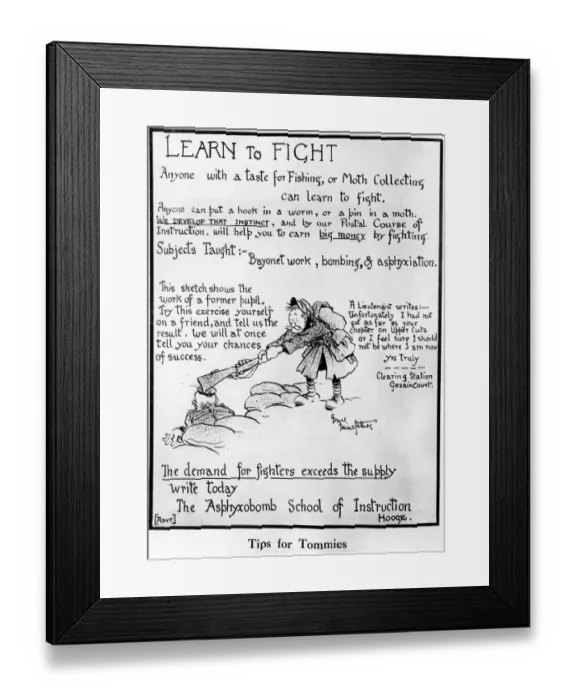 LEARN TO FIGHT
Anyone with a taste for Fishing, or Moth Collecting
can learn to fight.
Anyone can put a hook in a worm, or a pin in a moth.
WE DEVELOP THAT INSTINCT, and by our Postal Course of
Instruction, will help you to earn big money by fighting
Subjects Taught:-
Bayonet work, bombing, & asphyxiation.
This sketch shows the
work of a former pupil.
Try this exercise yourself
on a friend, and tell us the
result. We will at once
tell you your chances
of success.
A Lieutenant writes:—
Unfortunately I had not
got as far as your
chapter on Upper Cuts
or I feel sure I should
not be where I am now
yrs Truly
Clearing Station
Gezaincourt.
Bruce
Bairnsfather
The demand for fighters exceeds the supply
Write today
The Asphyxobomb School of Instruction
Hooge.
[Advt]
Tips for Tommies